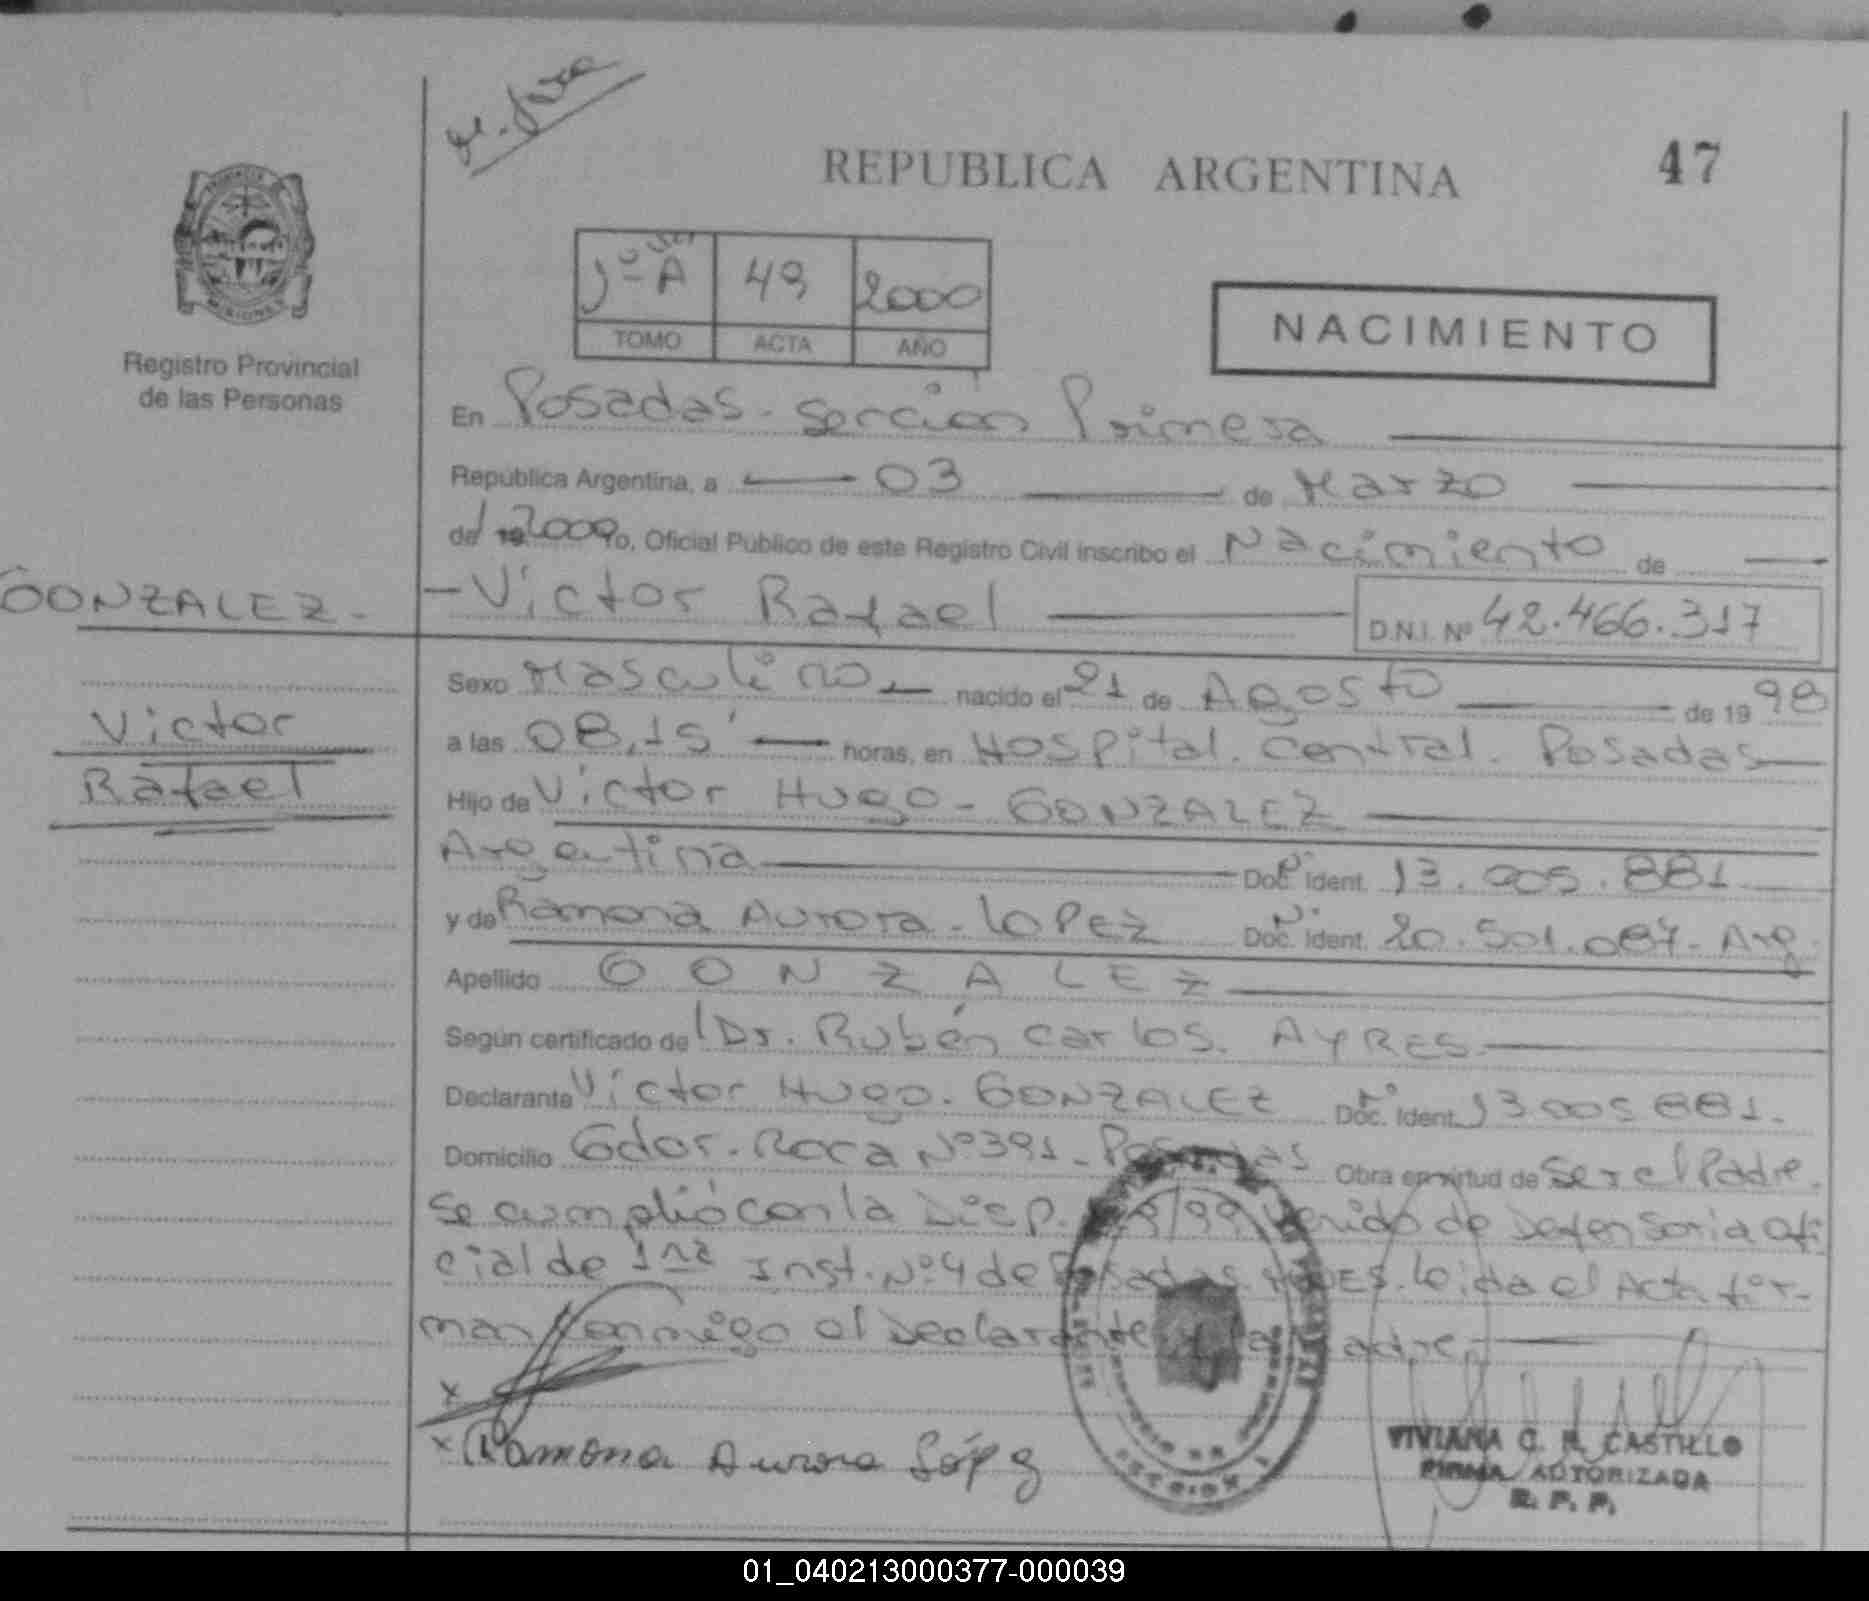 REPUBLICA ARGENTINA
47
Registro Provincial
de las Personas
1º A 49 2000
TOMO ACTA AÑO
NACIMIENTO
En Posadas - Sección Primera
República Argentina, a 03 de Marzo
de 19 2000 Yo, Oficial Público de este Registro Civil inscribo el Nacimiento de
GONZALEZ - Victor Rafael D.N.I. Nº 42.466.317
Victor
Rafael
Sexo Masculino nacido el 21 de Agosto de 19 98
a las 08,15' horas, en Hospital Central. Posadas
Hijo de Victor Hugo - GONZALEZ
Argentina Doc. Ident. Nº 13.005.881
y de Ramona Aurora - LOPEZ Doc. Ident. Nº 20.501.087 - Arg.
Apellido GONZALEZ
Según certificado de Dr. Rubén Carlos. AYRES
Declarante Victor Hugo. GONZALEZ Doc. Ident. Nº 13 005 881.
Domicilio Gdor. Roca Nº 391 - Posadas Obra en virtud de Ser el Padre.
Se cumplió con la Disp. /99 de Defensoria ofi
cial de 1ra Inst. Nº 4 de Posadas. Leida el Acta fir-
man conmigo el Declarante y la Madre
x
x Ramona Aurora López
VIVIANA C. R. CASTILLO
FIRMA AUTORIZADA
R. P. P.
01_040213000377-000039